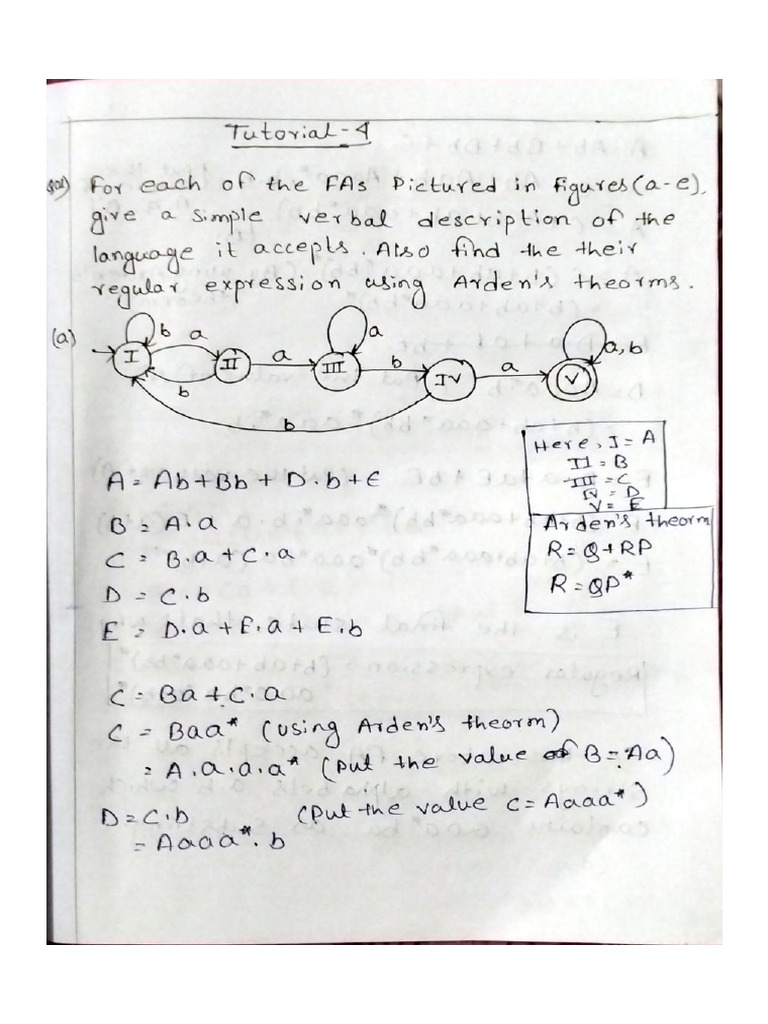 Tutorial-4
For each of the FAs Pictured in figures (a-e),
give a simple verbal description of the
language it accepts. Also find the their
regular expression using Arden's theorms.
(a)
I b a II a III a b IV a V a, b
b
b
Here, I = A
II = B
III = C
IV = D
V = E
Arden's theorm
R = Q + RP
R = QP*
A = Ab + Bb + D.b + ε
B = A.a
C = B.a + C.a
D = C.b
E = D.a + E.a + E.b
C = Ba + C.a
C = Baa* (using Arden's theorm)
= A.a.a.a* (Put the value of B = Aa)
D = C.b (Put the value C = Aaaa*)
= Aaaa*.b